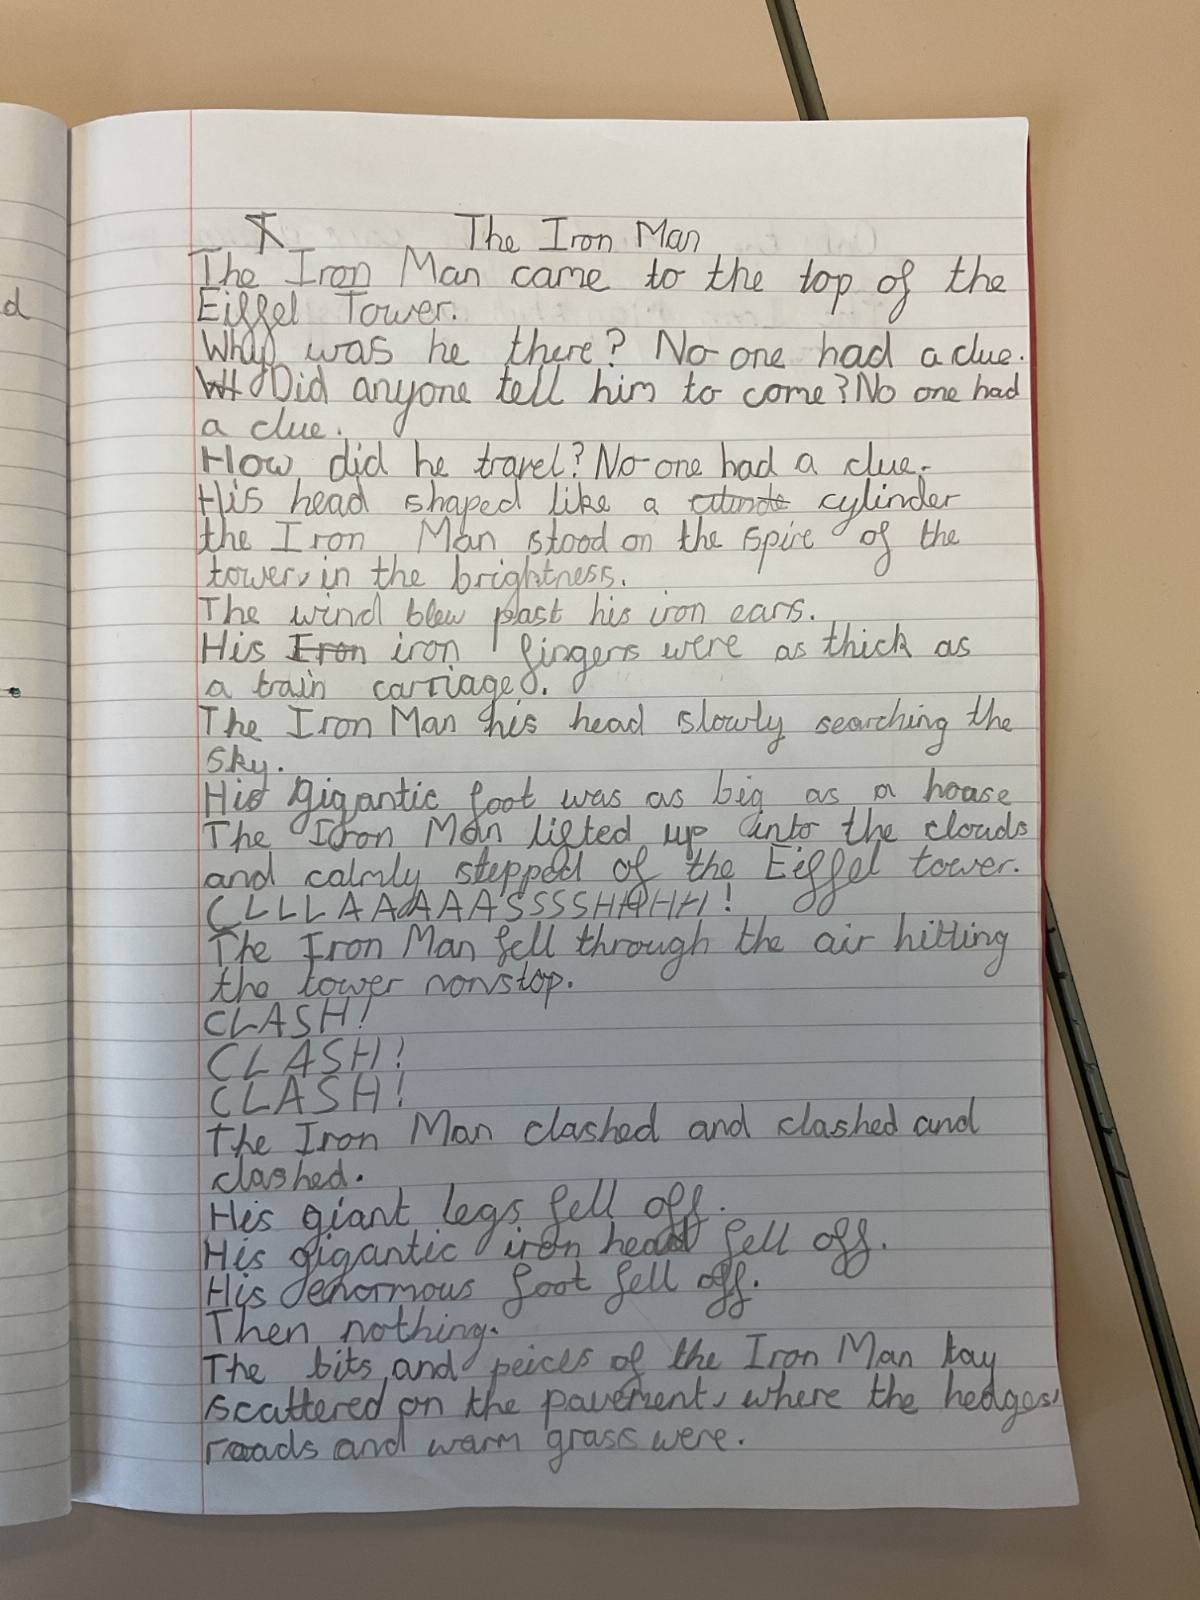 The Iron Man
The Iron Man came to the top of the
Eiffel Tower.
Why was he there? No one had a clue.
Did anyone tell him to come? No one had
a clue.
How did he travel? No one had a clue.
His head shaped like a cylinder
the Iron Man stood on the spire of the
tower, in the brightness.
The wind blew past his iron ears.
His Iron iron fingers were as thick as
a train carriage.
The Iron Man his head slowly searching the
sky.
His gigantic foot was as big as a house
The Iron Man lifted up into the clouds
and calmly stepped of the Eiffel tower.
CLLLAAAAAASSSSHHHHH!
The Iron Man fell through the air hitting
the tower nonstop.
CLASH!
CLASH!
CLASH!
The Iron Man clashed and clashed and
clashed.
His giant legs fell off.
His gigantic iron head fell off.
His enormous foot fell off.
Then nothing.
The bits and peices of the Iron Man lay
scattered on the pavement, where the hedges,
roads and warm grass were.
d
e